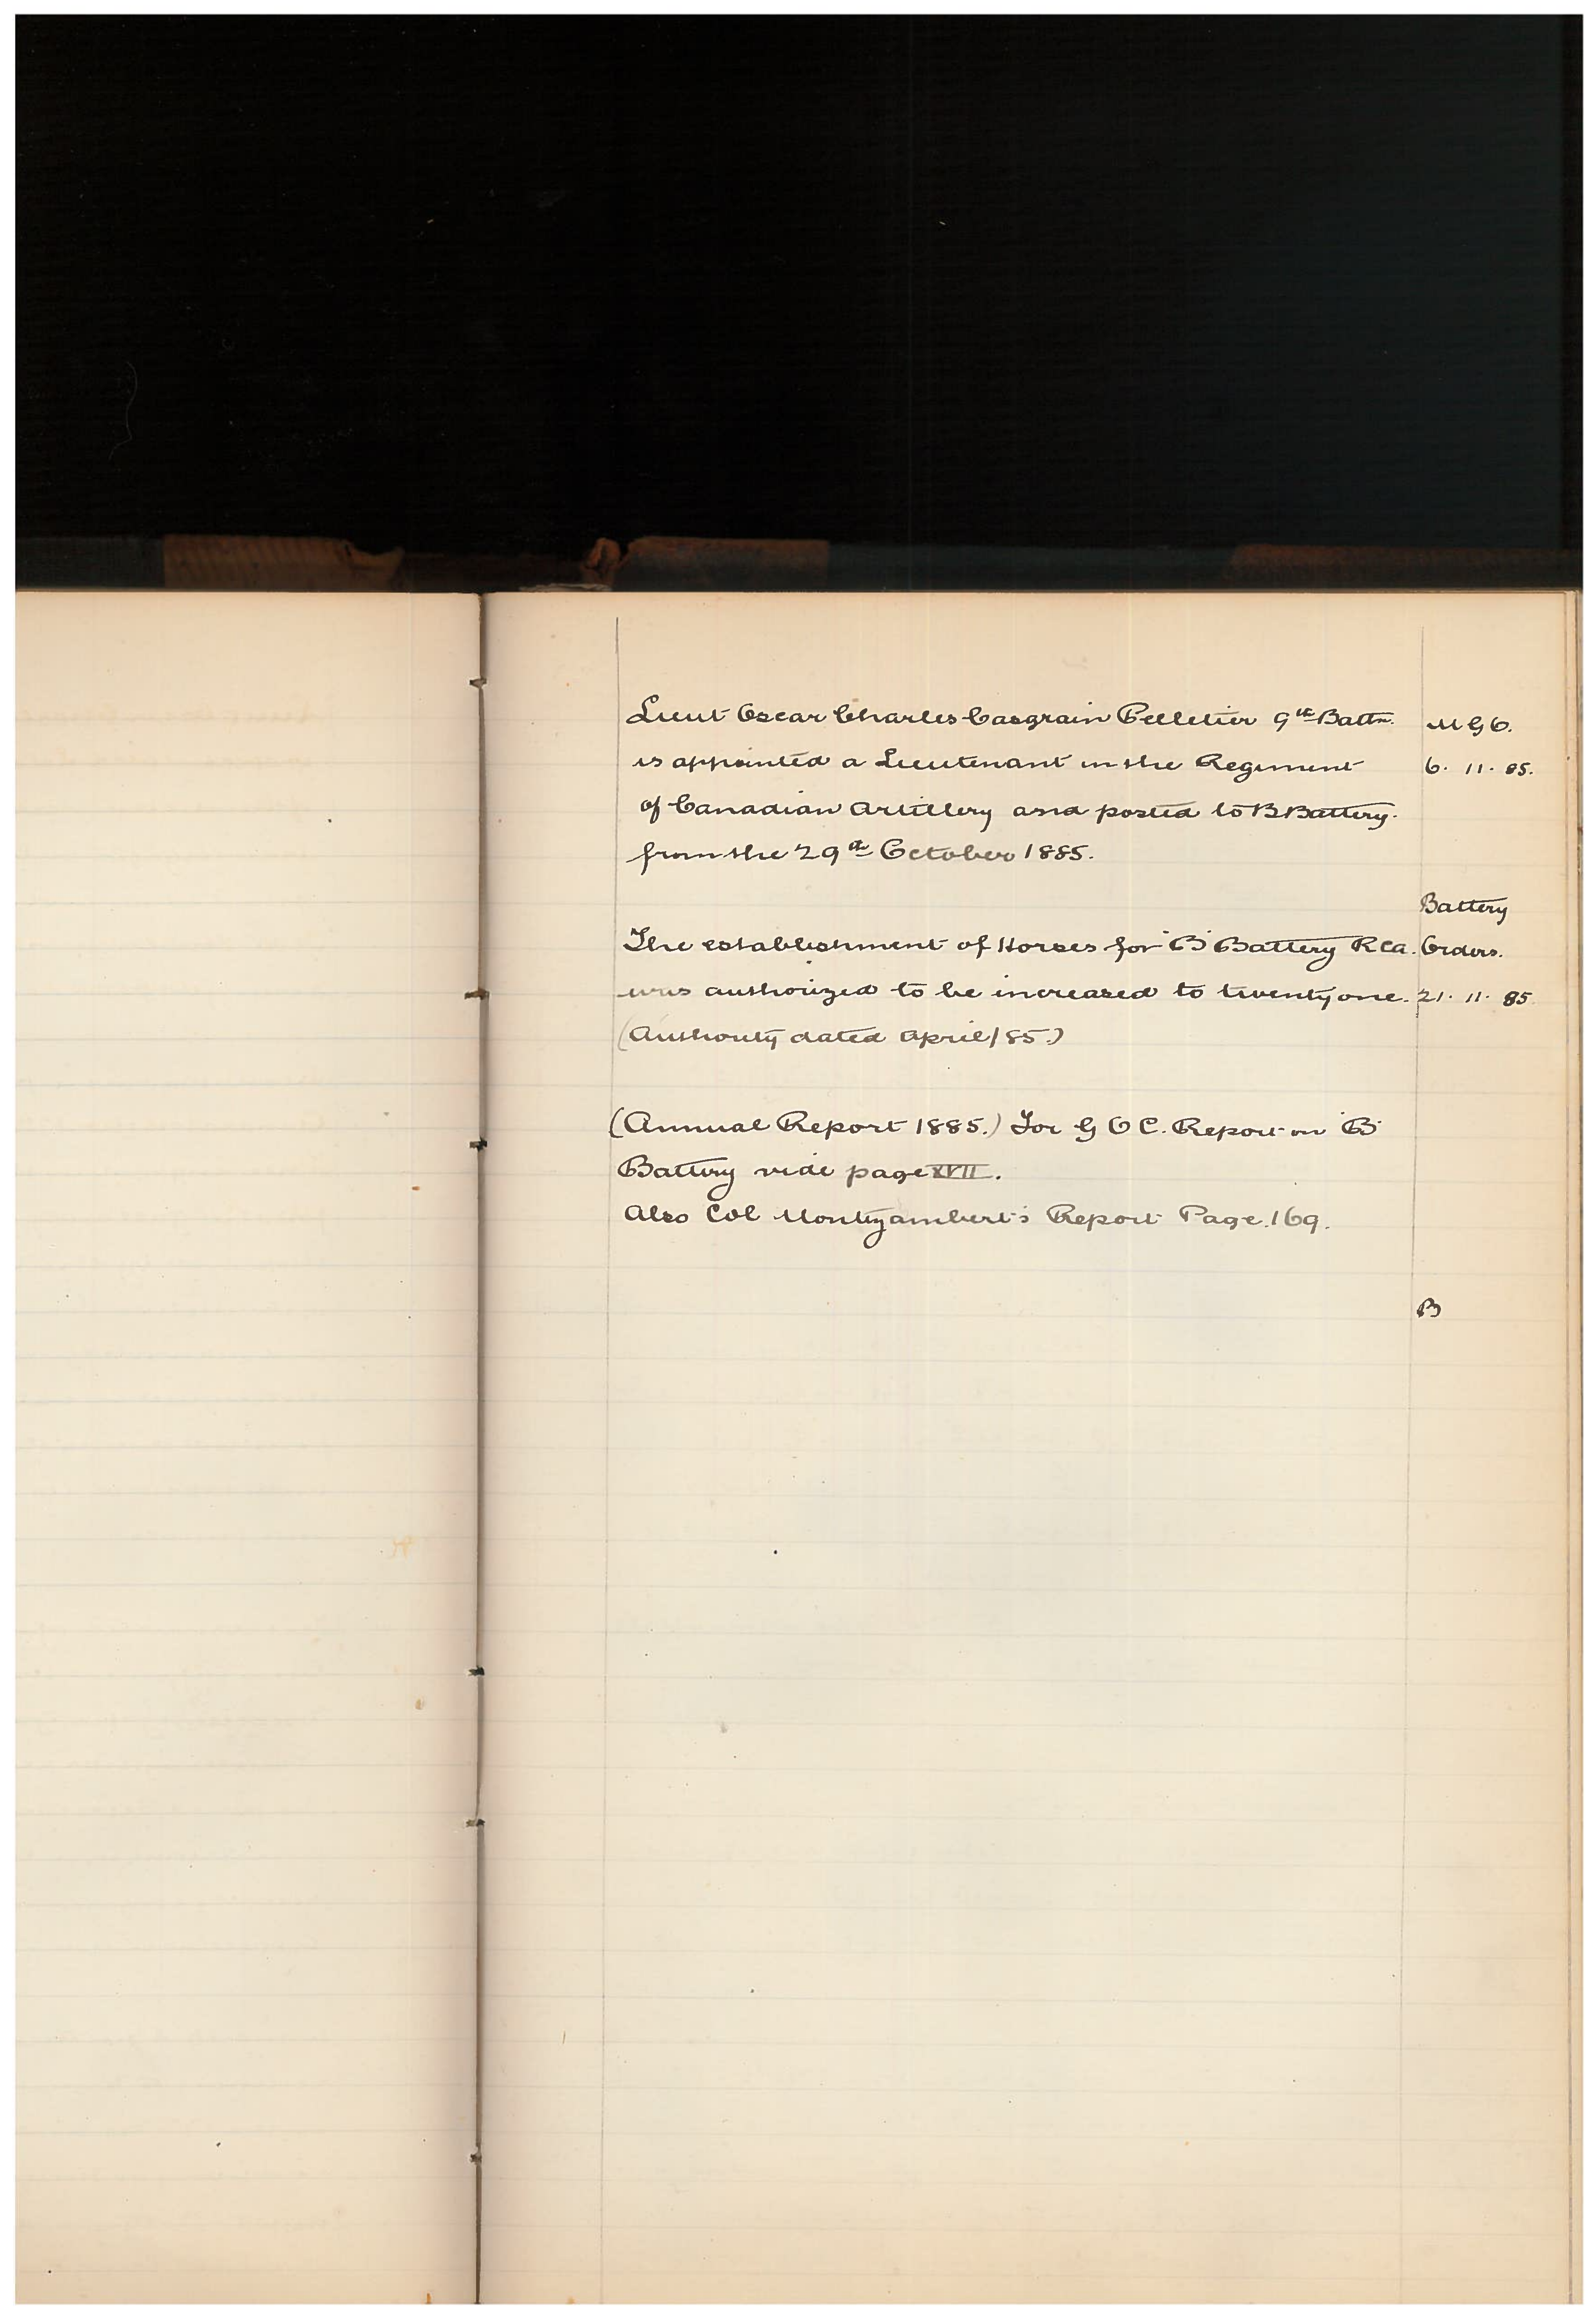 Lieut Oscar Charles Casgrain Pelletier 9th Battn. M G O.
is appointed a Lieutenant in the Regiment 6. 11. 85.
of Canadian Artillery and posted to B Battery.
from the 29th October 1885.
Battery
The establishment of Horses for "B" Battery RCA. Orders.
was authorized to be increased to twenty one. 21. 11. 85
(Authority dated April/85.)
(Annual Report 1885.) For G O C. Report on "B"
Battery vide page XVII.
Also Col Montizambert's Report Page. 169.
B